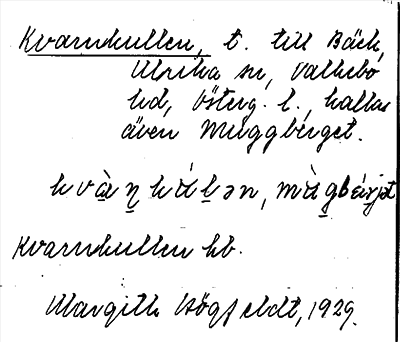 Kvarnkullen, t. till Bäck,
Ulrika sn, Valkebo
hd, Österg. l., kallas
även Muggberget.
kvà̱ṉkúḻən, mùgbærjət
Kvarnkullen hb.
Margith Högfeldt, 1929.